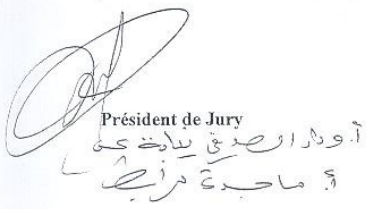 Président de Jury
أ. ودار الصديق نيابة عن
أ. ماجدة مرابط